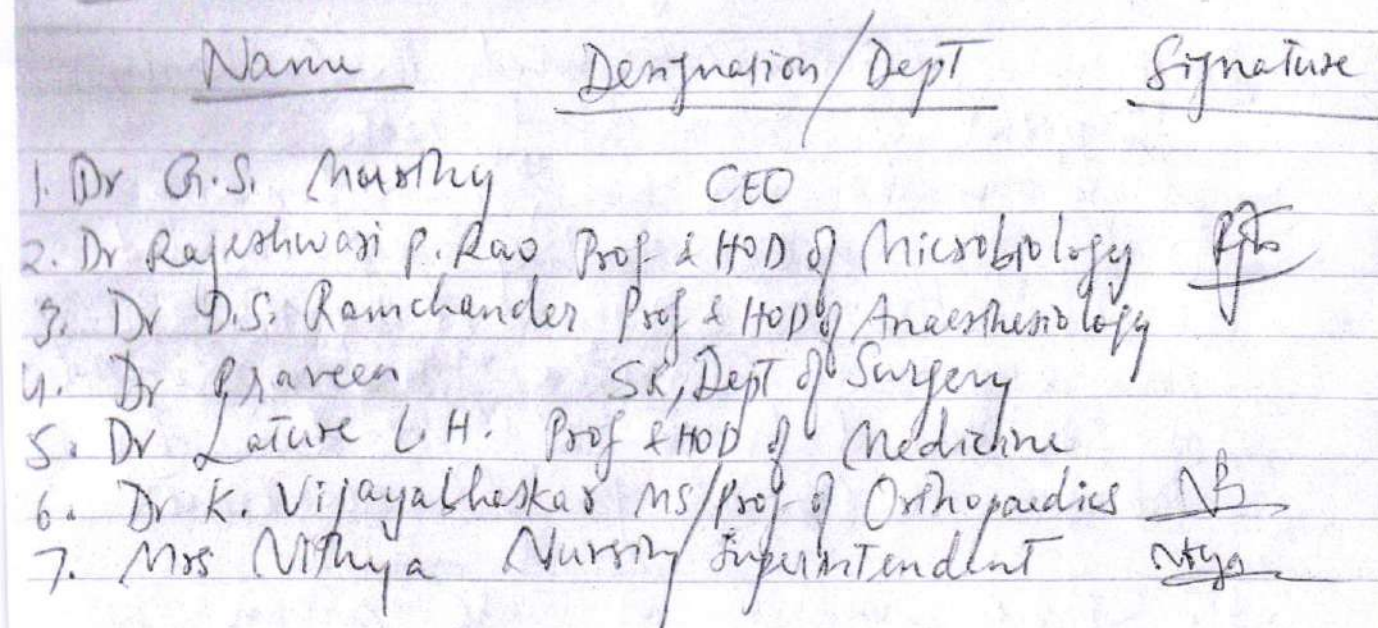 Name Designation/Dept Signature
1. Dr G.S. Moorthy CEO
2. Dr Rajeshwari P. Rao Prof & HOD of Microbiology
3. Dr D.S. Ramchander Prof & HOD of Anaesthesiology
4. Dr Praveen SR, Dept of Surgery
5. Dr Lature L.H. Prof & HOD of Medicine
6. Dr K. Vijayabhaskar MS/Prof of Orthopaedics
7. Mrs Nithya Nursing Superintendent